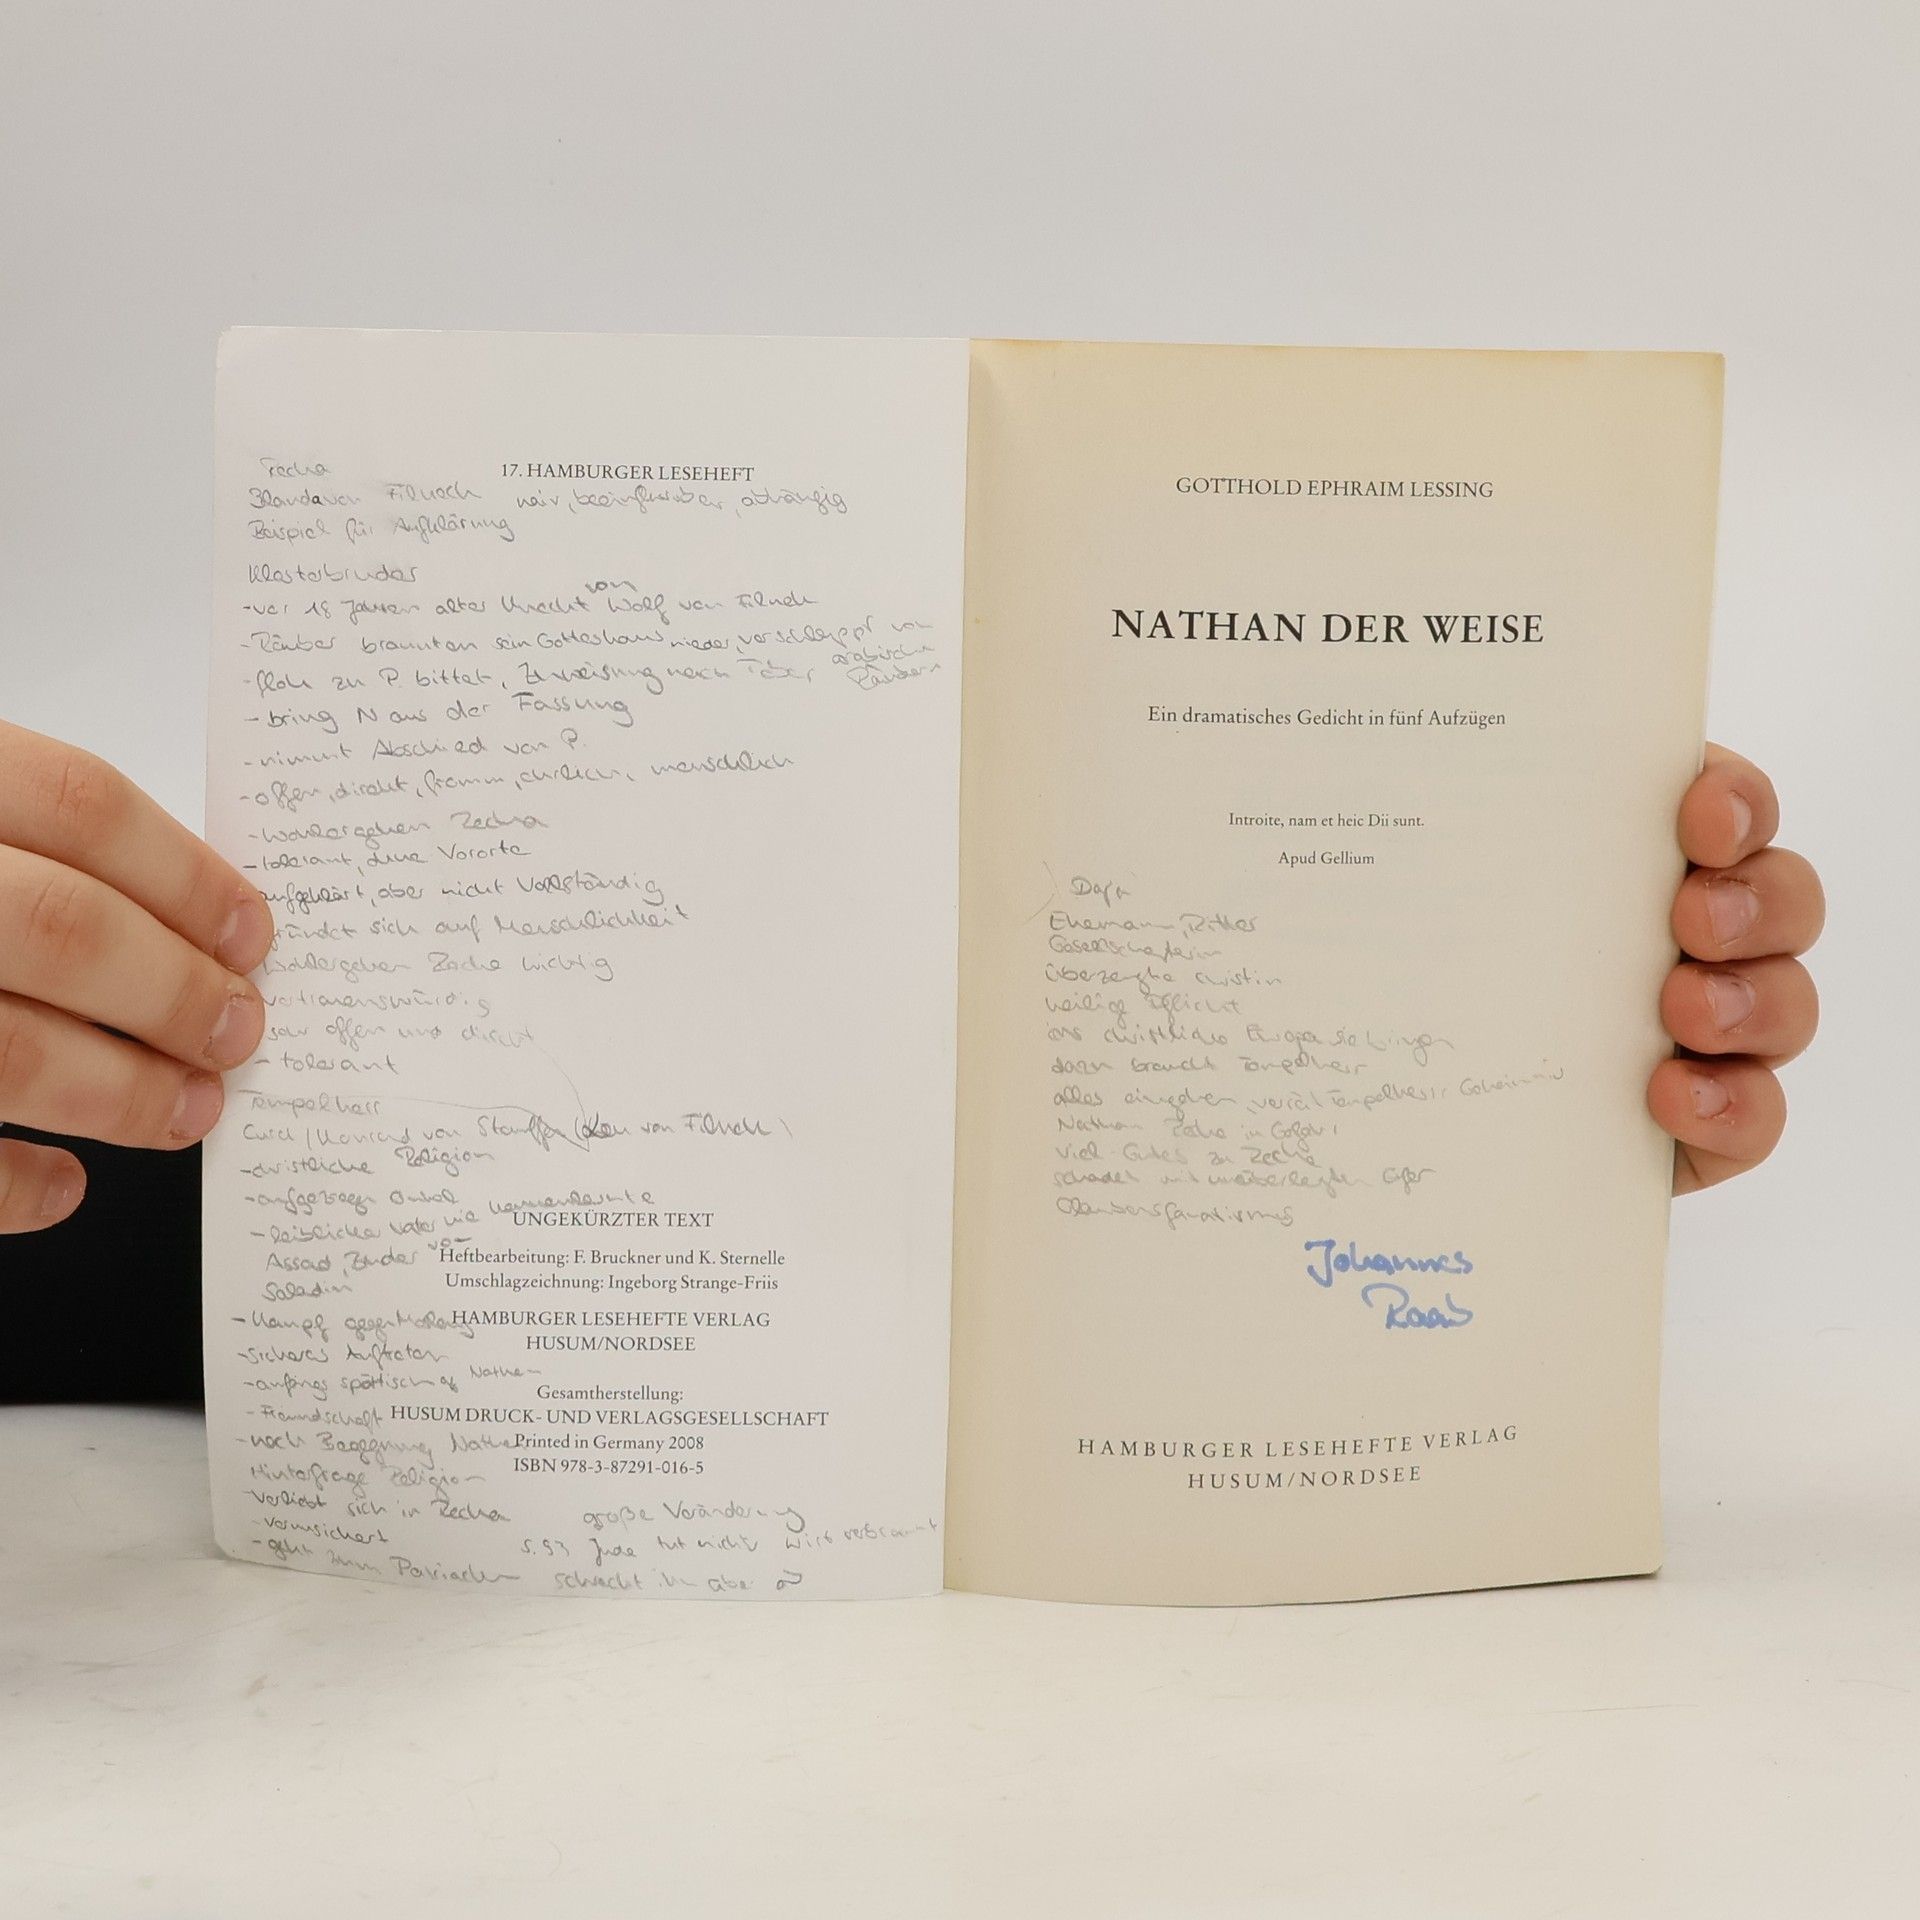 17. HAMBURGER LESEHEFT
Recha
Blanda von Filneck naiv, beeinflussbar, abhängig
Beispiel für Aufklärung
Klosterbruder
-vor 18 Jahren alter Knecht von Wolf von Filneck
-Räuber brannten sein Gotteshaus nieder, verschleppt von arabischen Räubern
-floh zu P. bittet, Zuweisung nach Tabor
-bring N aus der Fassung
-nimmt Abschied von P.
-offen, direkt, fromm, ehrlich, menschlich
-Wohlergehen Recha
-tolerant, ohne Vororte
aufgeklärt, aber nicht vollständig
gründet sich auf Menschlichkeit
Wohlergehen Recha wichtig
vertrauenswürdig
sehr offen und direkt
- tolerant
Tempelherr
Curd / Konrad von Stauffen (Leu von Filneck)
-christliche Religion
-aufgezogen Onkel
-leiblicher Vater nie kennenlernte
Assad, Bruder von
Saladin
UNGEKÜRZTER TEXT
Heftbearbeitung: F. Bruckner und K. Sternelle
Umschlagzeichnung: Ingeborg Strange-Friis
HAMBURGER LESEHEFTE VERLAG
HUSUM/NORDSEE
- Kampf gegen
-sicheres Auftreten
-anfangs spöttisch Nathan
- Freundschaft
Gesamtherstellung:
HUSUM DRUCK- UND VERLAGSGESELLSCHAFT
Printed in Germany 2008
ISBN 978-3-87291-016-5
-nach Begegnung Nathan
Hinterfrage Religion
-verliebt sich in Recha große Veränderung
-verunsichert S. 93 Jude tut nichts wird verbrannt
-geht zum Patriarchen schwächt ihn aber
GOTTHOLD EPHRAIM LESSING
NATHAN DER WEISE
Ein dramatisches Gedicht in fünf Aufzügen
Introite, nam et heic Dii sunt.
Apud Gellium
Daja
Ehemann, Ritter
Gesellschafterin
überzeugte Christin
heilige Pflicht
ins christliche Europa sie bringen
dazu braucht Tempelherr
alles eingehen, verrät Tempelherr Geheimnis
Nathan Recha in
viel Gutes zu Recha
schadet mit unüberlegten Eifer
Glaubensfanatismus
Johannes
Raab
HAMBURGER LESEHEFTE VERLAG
HUSUM/NORDSEE